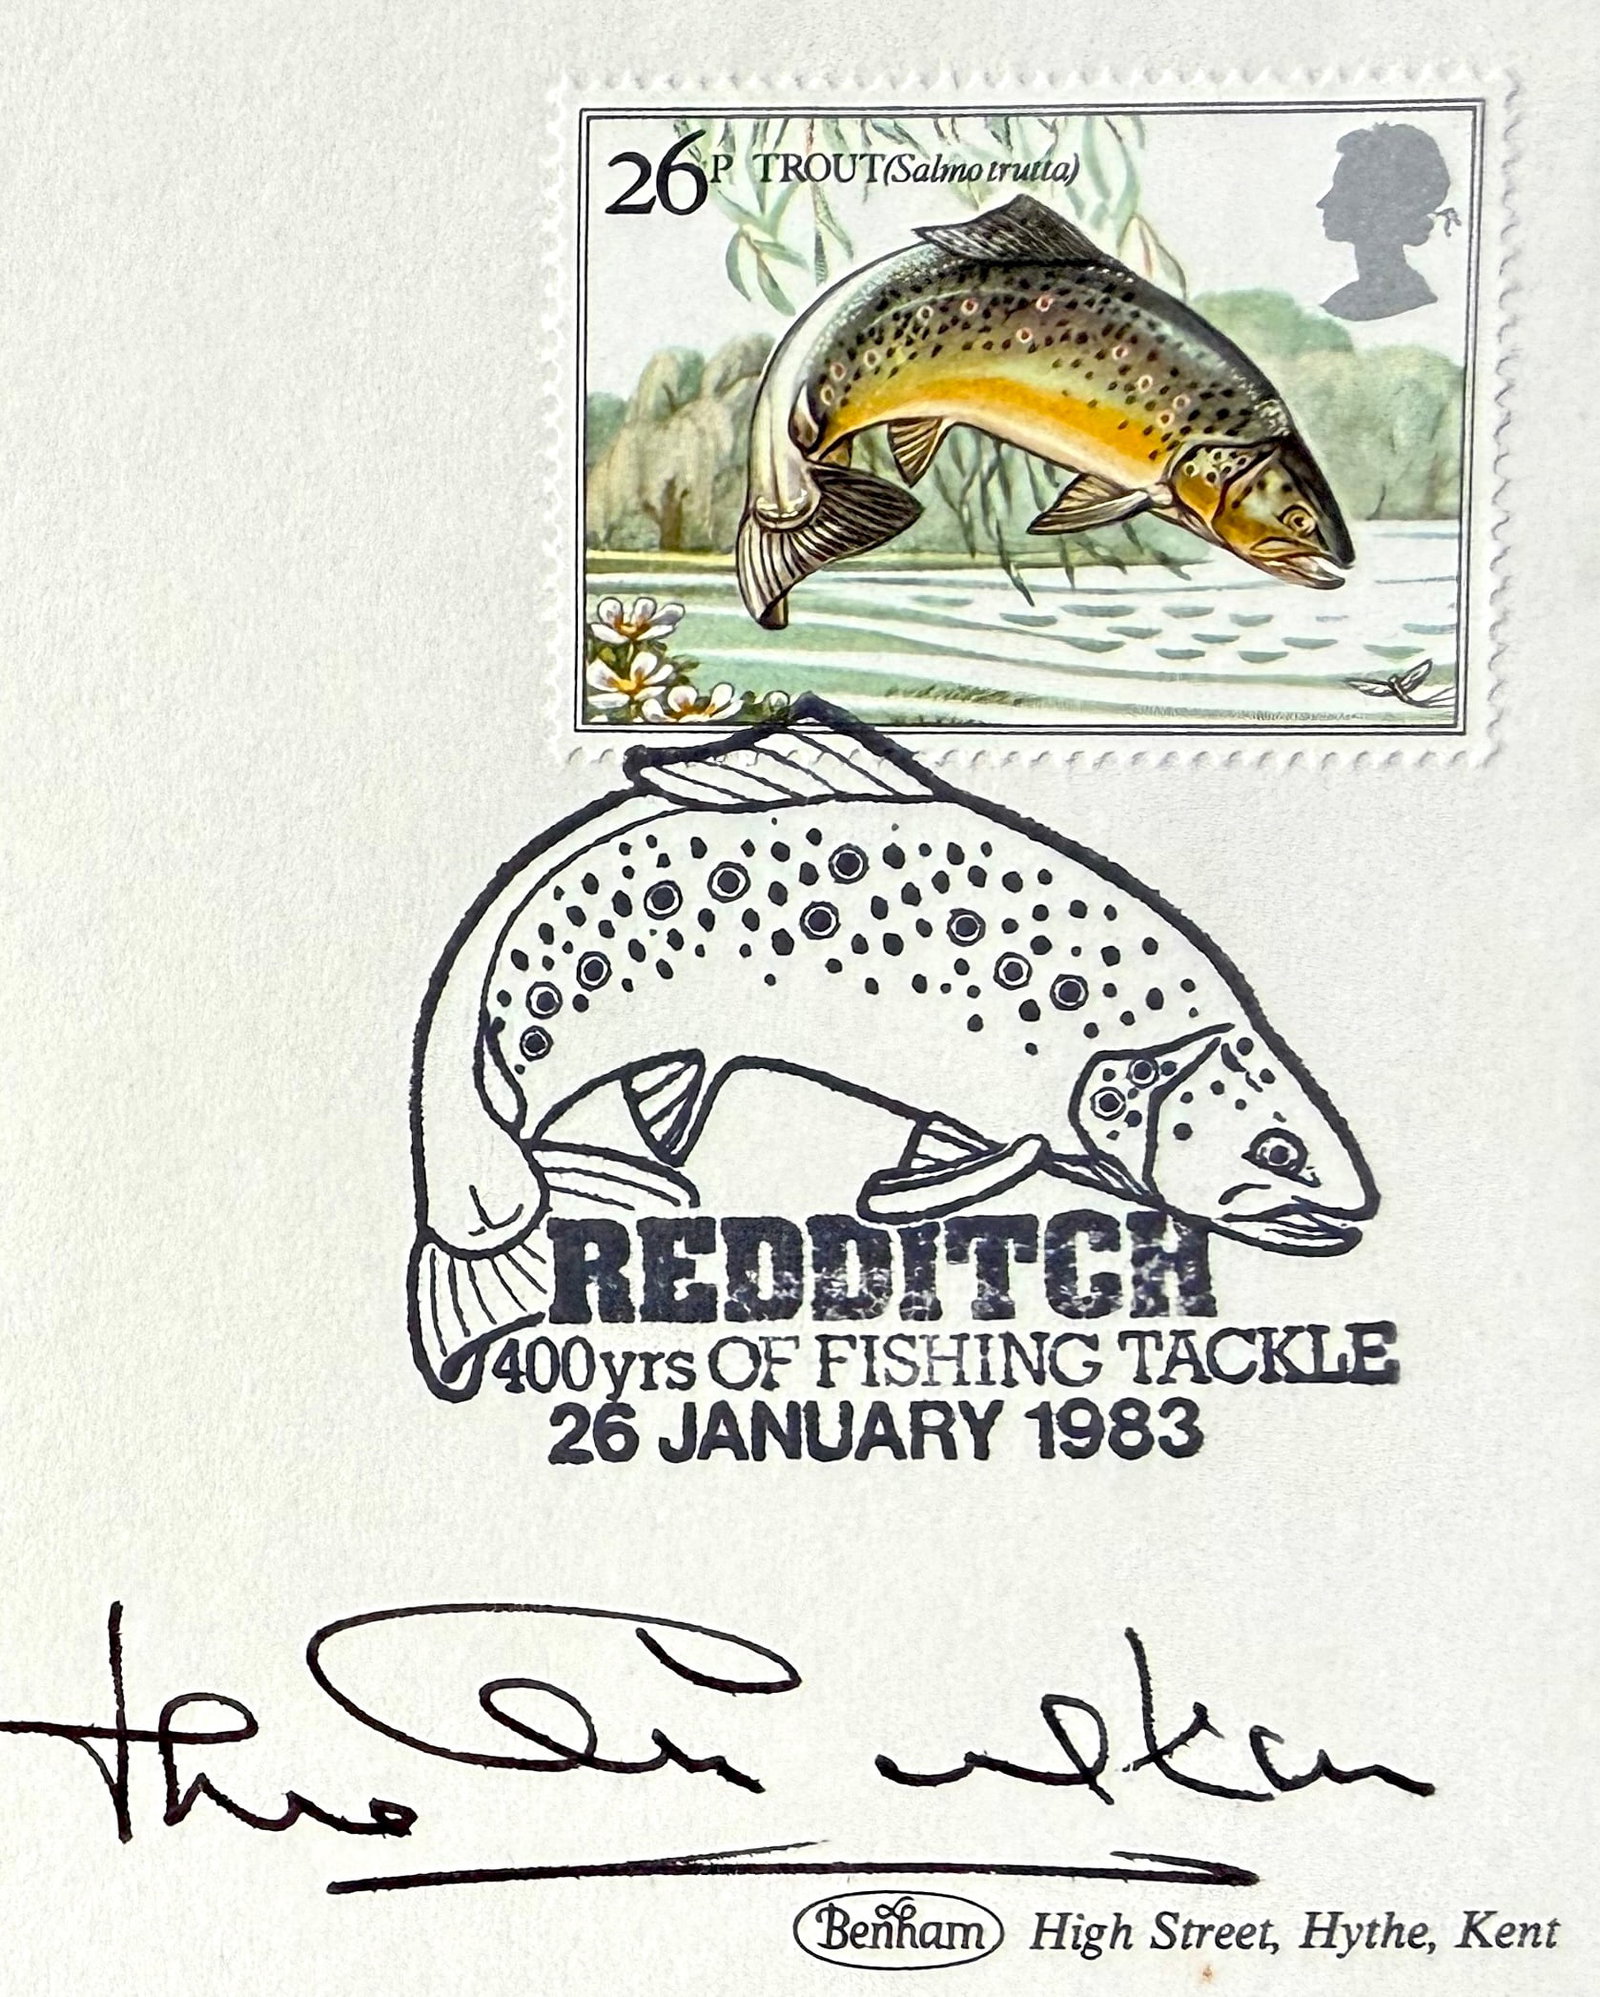 26P TROUT (Salmo trutta)
REDDITCH
400yrs OF FISHING TACKLE
26 JANUARY 1983
Benham High Street, Hythe, Kent